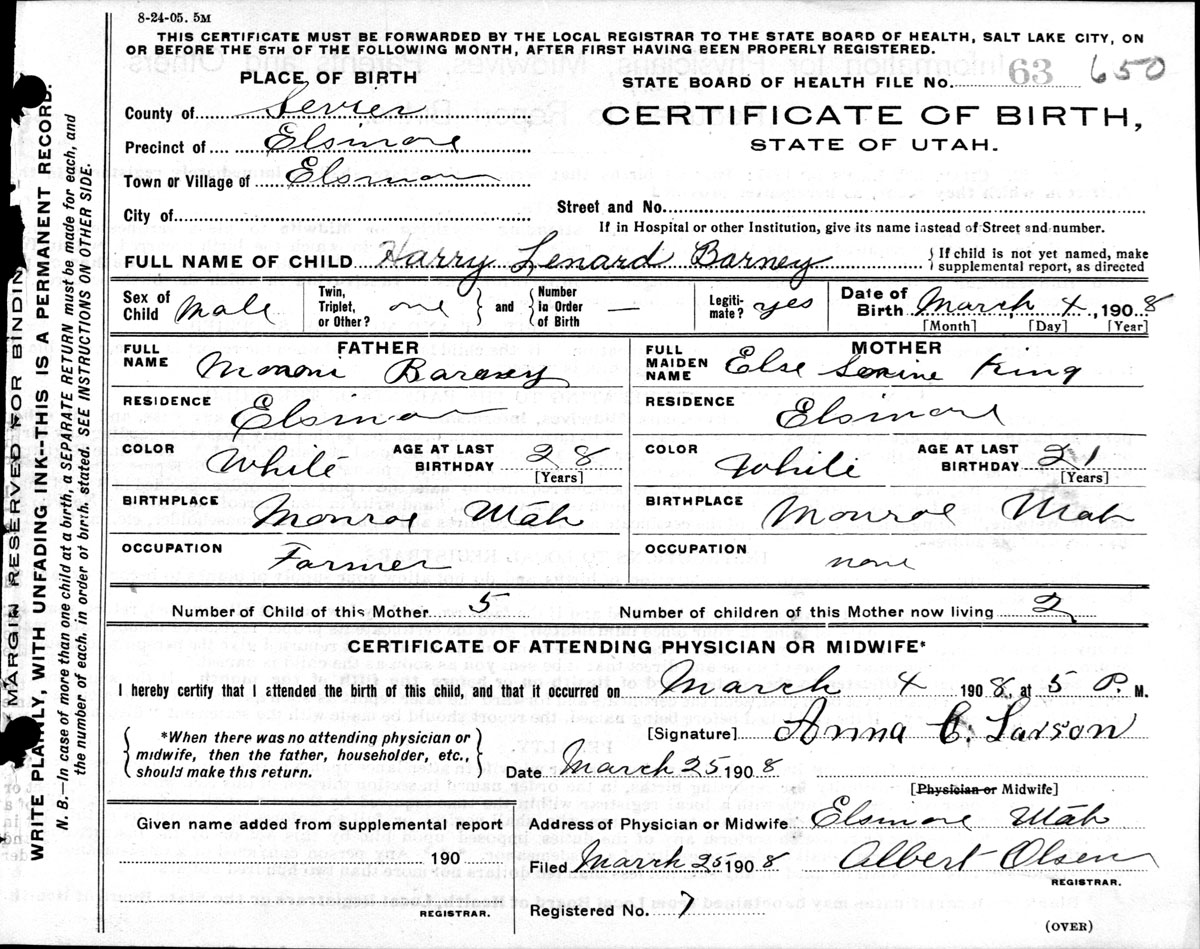 8-24-05. 5M
THIS CERTIFICATE MUST BE FORWARDED BY THE LOCAL REGISTRAR TO THE STATE BOARD OF HEALTH, SALT LAKE CITY, ON
OR BEFORE THE 5TH OF THE FOLLOWING MONTH, AFTER FIRST HAVING BEEN PROPERLY REGISTERED.
PLACE OF BIRTH
STATE BOARD OF HEALTH FILE No. 63 650
County of Sevier
CERTIFICATE OF BIRTH,
Precinct of Elsinore
STATE OF UTAH.
Town or Village of Elsinore
City of
Street and No.
If in Hospital or other Institution, give its name instead of Street and number.
FULL NAME OF CHILD Harry Lenard Barney { If child is not yet named, make supplemental report, as directed
Sex of Child Male Twin, Triplet, or Other? one } and { Number in Order of Birth — Legitimate? yes Date of Birth March 4, 1908
[Month] [Day] [Year]
FATHER MOTHER
FULL NAME Moroni Barney FULL MAIDEN NAME Else Sonine King
RESIDENCE Elsinore RESIDENCE Elsinore
COLOR White AGE AT LAST BIRTHDAY 28 [Years] COLOR White AGE AT LAST BIRTHDAY 21 [Years]
BIRTHPLACE Monroe Utah BIRTHPLACE Monroe Utah
OCCUPATION Farmer OCCUPATION none
Number of Child of this Mother 5 Number of children of this Mother now living 2
CERTIFICATE OF ATTENDING PHYSICIAN OR MIDWIFE*
I hereby certify that I attended the birth of this child, and that it occurred on March 4 1908, at 5 P. M.
{ *When there was no attending physician or midwife, then the father, householder, etc., should make this return. }
[Signature] Anna C. Larson
Date March 25 1908
[Physician or Midwife]
Given name added from supplemental report
190
REGISTRAR.
Address of Physician or Midwife Elsinore Utah
Filed March 25 1908 Albert Olsen
REGISTRAR.
Registered No. 7
(OVER)
MARGIN RESERVED FOR BINDING
WRITE PLAINLY, WITH UNFADING INK--THIS IS A PERMANENT RECORD.
N. B.—In case of more than one child at a birth, a SEPARATE RETURN must be made for each, and
the number of each, in order of birth, stated. SEE INSTRUCTIONS ON OTHER SIDE.